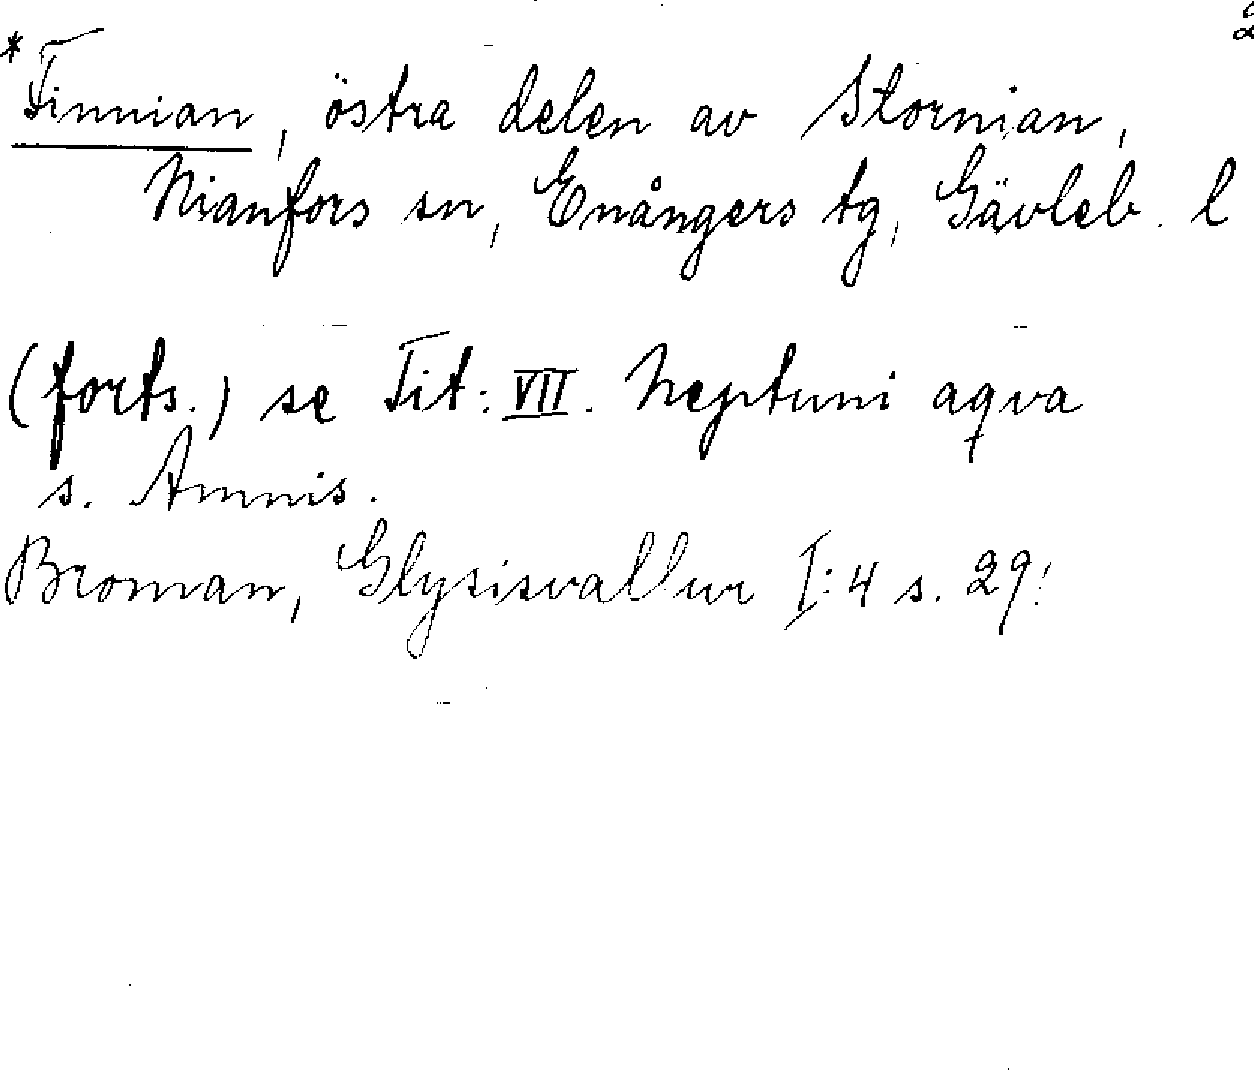 2
*Finnian, östra delen av Stornian,
Nianfors sn, Enångers tg, Gävleb. l
(forts.) se Tit: VII. Neptuni aqva
s. Amnis.
Broman, Glysisvallur I:4 s. 29!